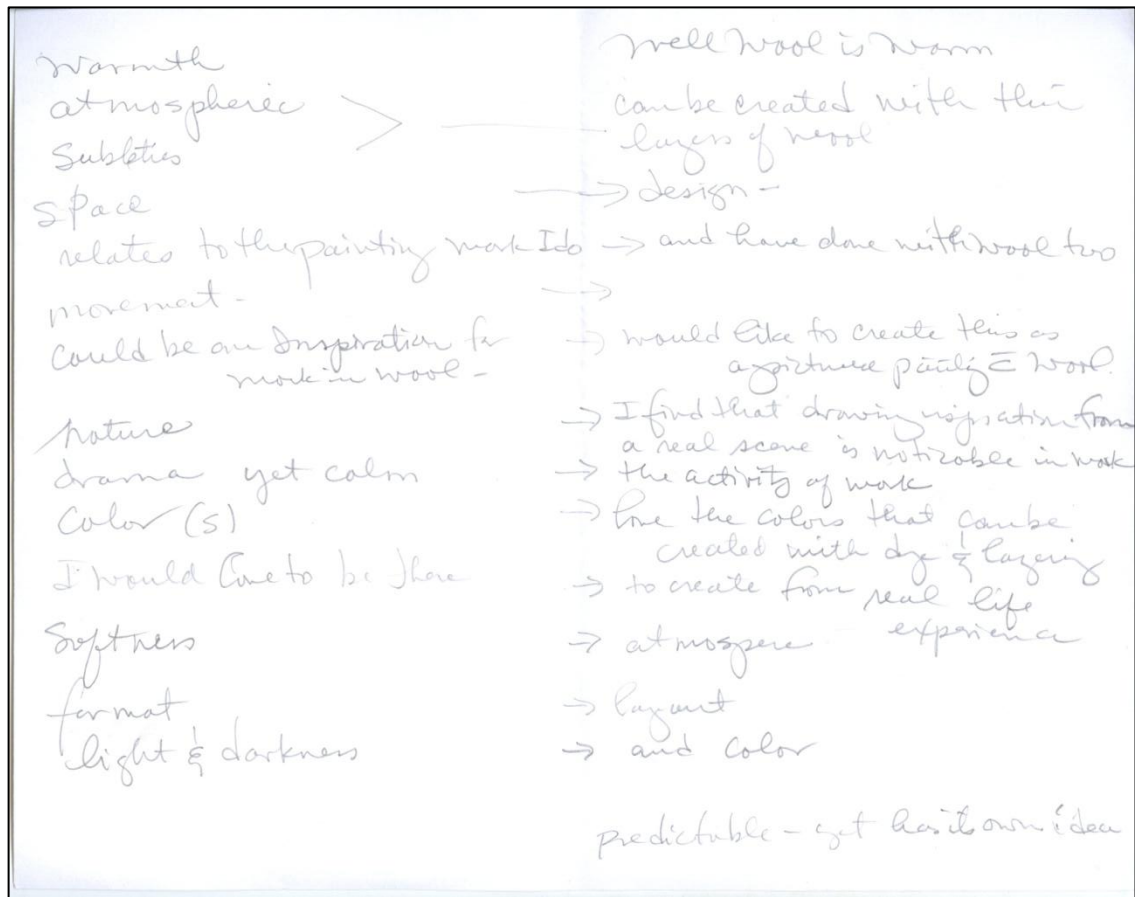 Warmth
atmospheric
Subleties
space
relates to the painting work I do
movement -
could be an Inspiration for
work in wool -
nature
drama yet calm
Color (s)
I would love to be there
Softness
format
light & darkness
Well Wool is Warm
can be created with thin
layers of wool
→ design -
→ and have done with wool too
→
→ would like to create this as
a picture c̄ wool.
→ I find that drawing inspiration from
a real scene is noticable in work
→ the activity of work
→ love the colors that can be
created with dye & layering
→ to create from real life
experience
→ atmospere
→ layout
→ and color
predictable - yet has its own idea